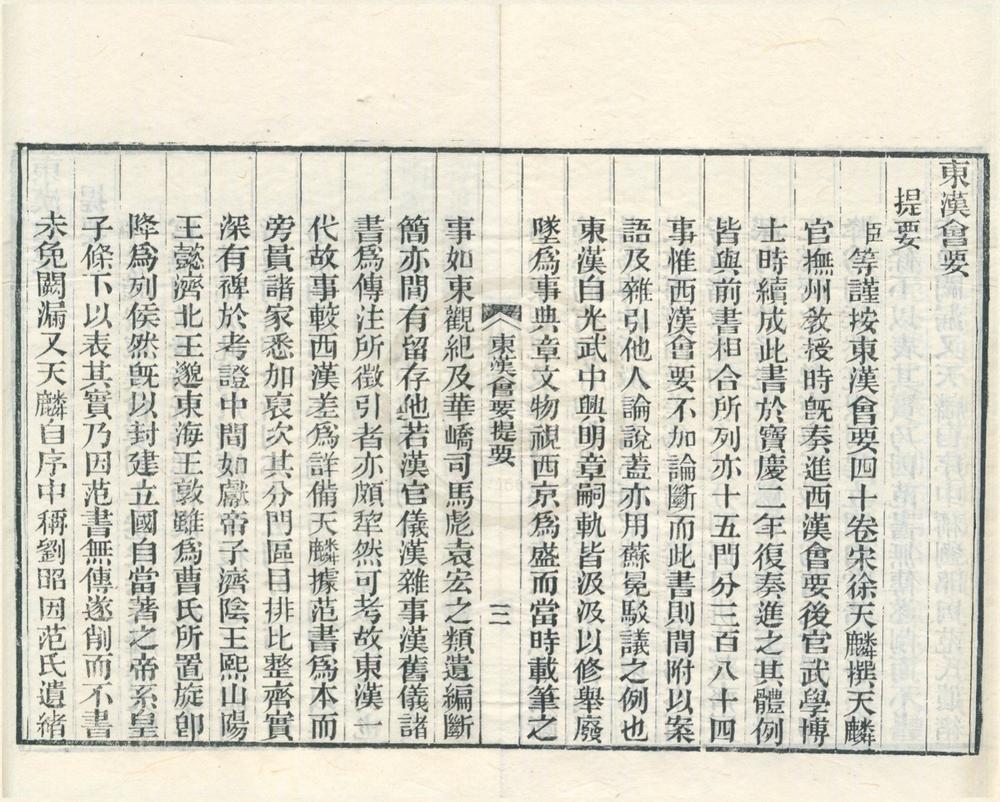 東漢會要
提要
臣等謹按東漢會要四十卷宋徐天麟撰天麟
官撫州敎授時旣奏進西漢會要後官武學博
士時續成此書於寶慶二年復奏進之其體例
皆與前書相合所列亦十五門分三百八十四
事惟西漢會要不加論斷而此書則間附以案
語及雜引他人論說蓋亦用蘇冕駁議之例也
東漢自光武中興明章嗣軌皆汲汲以修舉廢
墜爲事典章文物視西京爲盛而當時載筆之
東漢會要提要 三
事如東觀紀及華嶠司馬彪袁宏之類遺編斷
簡亦間有留存他若漢官儀漢雜事漢舊儀諸
書爲傳注所徵引者亦頗犂然可考故東漢一
代故事較西漢差爲詳備天麟據范書爲本而
旁貫諸家悉加裒次其分門區目排比整齊實
深有裨於考證中間如獻帝子濟陰王熙山陽
王懿濟北王邈東海王敦雖爲曹氏所置旋卽
降爲列侯然旣以封建立國自當著之帝系皇
子條下以表其實乃因范書無傳遂削而不書
未免闕漏又天麟自序中稱劉昭因范氏遺緖